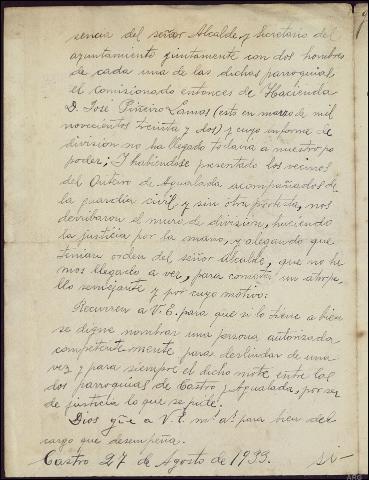 sencia del señor Alcalde y Secretario del
ayuntamiento juntamente con dos hombres
de cada una de las dichas parroquias
el Comisionado entonces de Hacienda
D. José Piñeiro Lamas (esto en marzo de mil
novecientos treinta y dos) y cuyo informe de
división no ha llegado todavia a nuestro po
poder; I habiéndose presentado los vecinos
del Outeiro de Agualada acompañados de
la guardia civil y sin otra protesta, nos
derribaron el muro de división, haciendo
la justicia por la mano, y alegando que
tenian orden del señor Alcalde, que no he
mos llegado a ver, para cometer un atrope
llo semejante y por cuyo motivo:
Recurren a V.E. para que si lo tiene a bien
se digne nombrar una persona autorizada
competentemente para deslindar de una
vez y para siempre el dicho monte entre las
dos parroquias de Castro y Agualada, por ser
de justicia lo que se pide.
Dios güe a V.E. ms. as. para bien del
cargo que desempeña.
Castro 27 de Agosto de 1933. si-
ARG